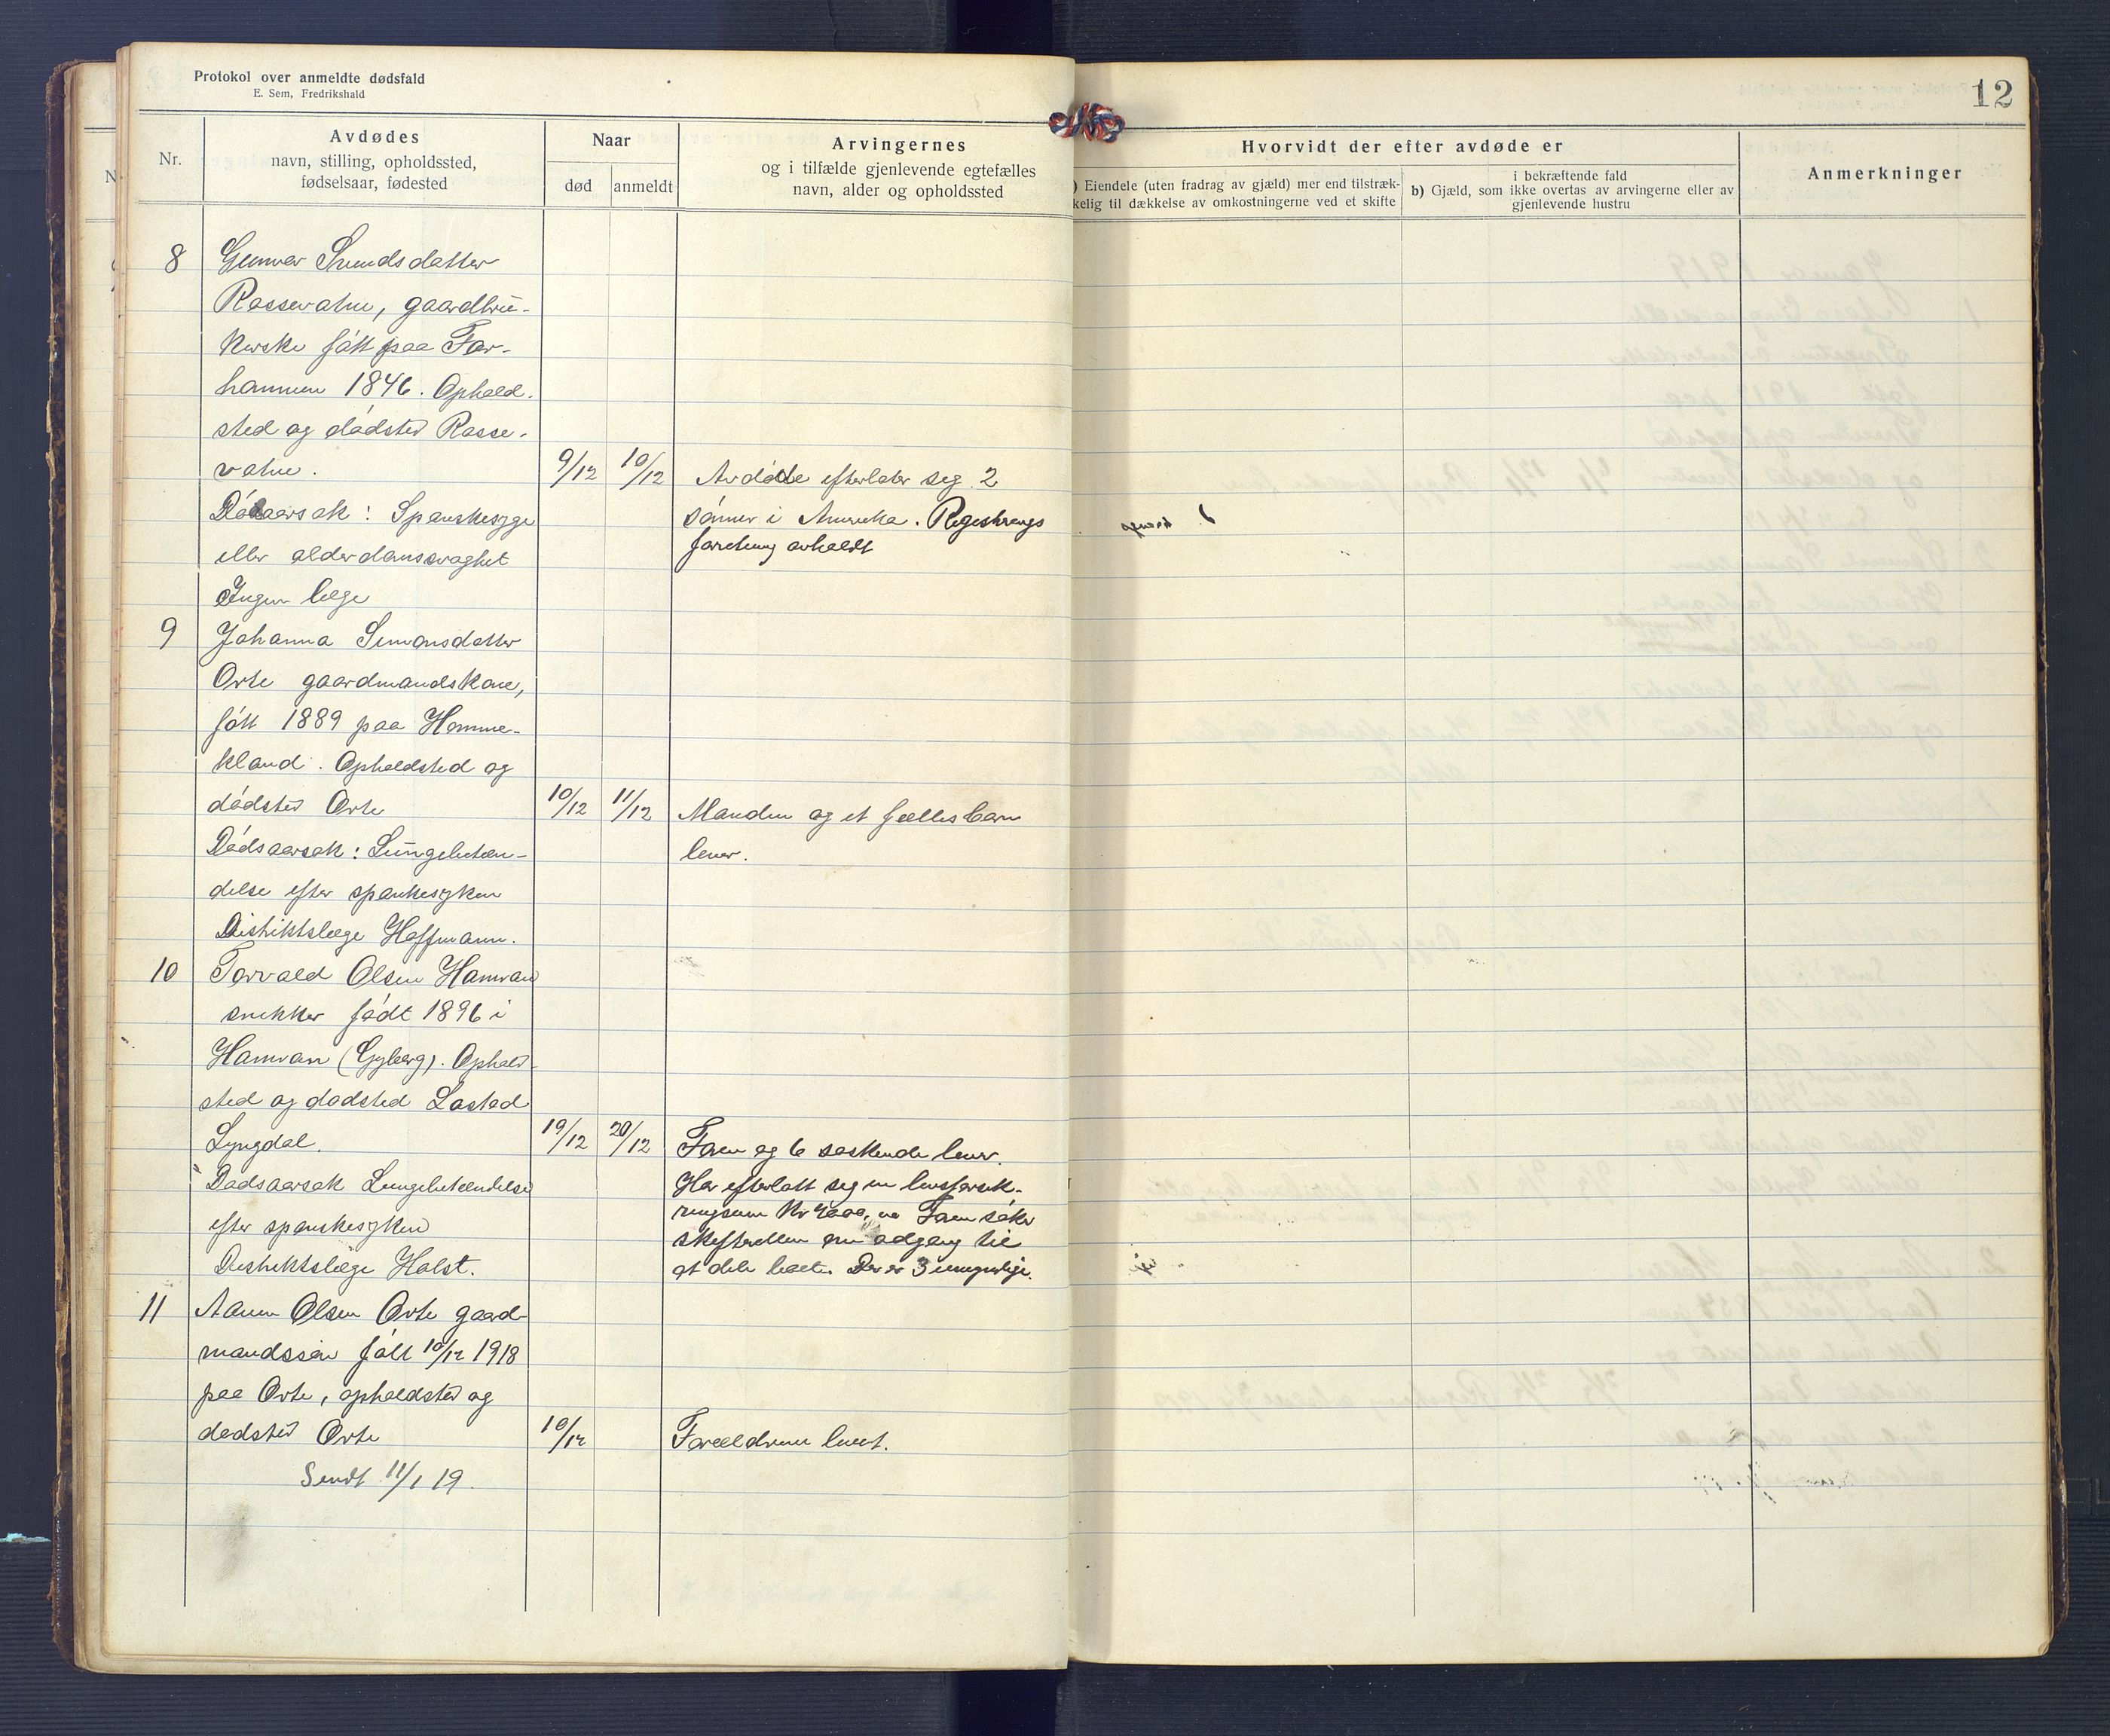 Protokol over anmeldte dødsfald
E. Sem, Fredrikshald
12
Nr.
Avdødes
navn, stilling, opholdssted,
fødselsaar, fødested
Naar
død
anmeldt
Arvingernes
og i tilfælde gjenlevende egtefælles
navn, alder og opholdssted
Hvorvidt der efter avdøde er
) Eiendele (uten fradrag av gjæld) mer end tilstræk-
kelig til dækkelse av omkostningerne ved et skifte
i bekræftende fald
b) Gjæld, som ikke overtas av arvingerne eller av
gjenlevende hustru
Anmerkninger
8
Gunvor Svendsdatter
Rossevatne, gaardbru-
kerske født paa
1846. Ophold-
sted og dødsted Rosse-
vatne.
9/12
10/12
Avdøde efterlater seg 2
sønner i Amerika. Regestrerings
forretning avholdt
Dødsaarsak: Spanskesyge
eller alderdomssvaghet
Ingen læge
9
Johanna Simonsdatter
Orte gaardmandskone,
født 1889 paa Homme-
kland. Opholdsted og
dødsted Orte
10/12
11/12
Manden og et fællesbarn
lever.
Dødsaarsak: Lungebeten-
delse efter spankesyken
Distriktslæge Hoffmann.
10
Torvald Olsen Hamran
snekker født 1896 i
Hamran (Gyberg). Ophold-
sted og dødsted Lasted
Lyngdal.
19/12
20/12
Faren og 6 søskende lever.
Har efterlatt seg en livsforsik-
ringsum Kr Faren søker
skifteretten om adgang til
at dele boet. Der er 3 umyndige.
Dødsaarsak Lungebetændelse
efter spanskesyken
Distriktslæge Holst.
11
Aanen Olsen Orte gaard-
mandssøn født 10/12 1918
paa Orte, opholdsted og
dødsted Orte
10/12
Forældrene lever.
Sendt 11/1 19.